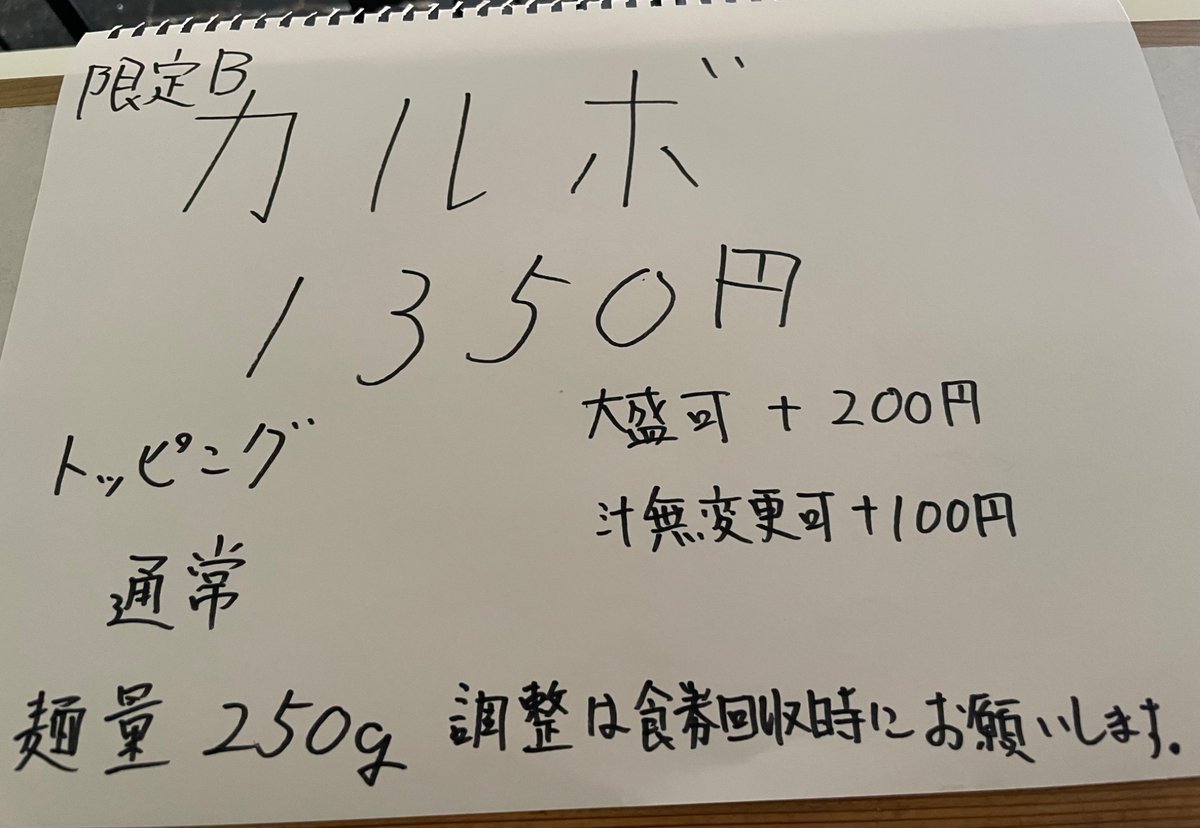 限定B
カルボ
1350円
大盛可 + 200円
トッピング
汁無変更可+100円
通常
麺量 250g 調整は食券回収時にお願いします。